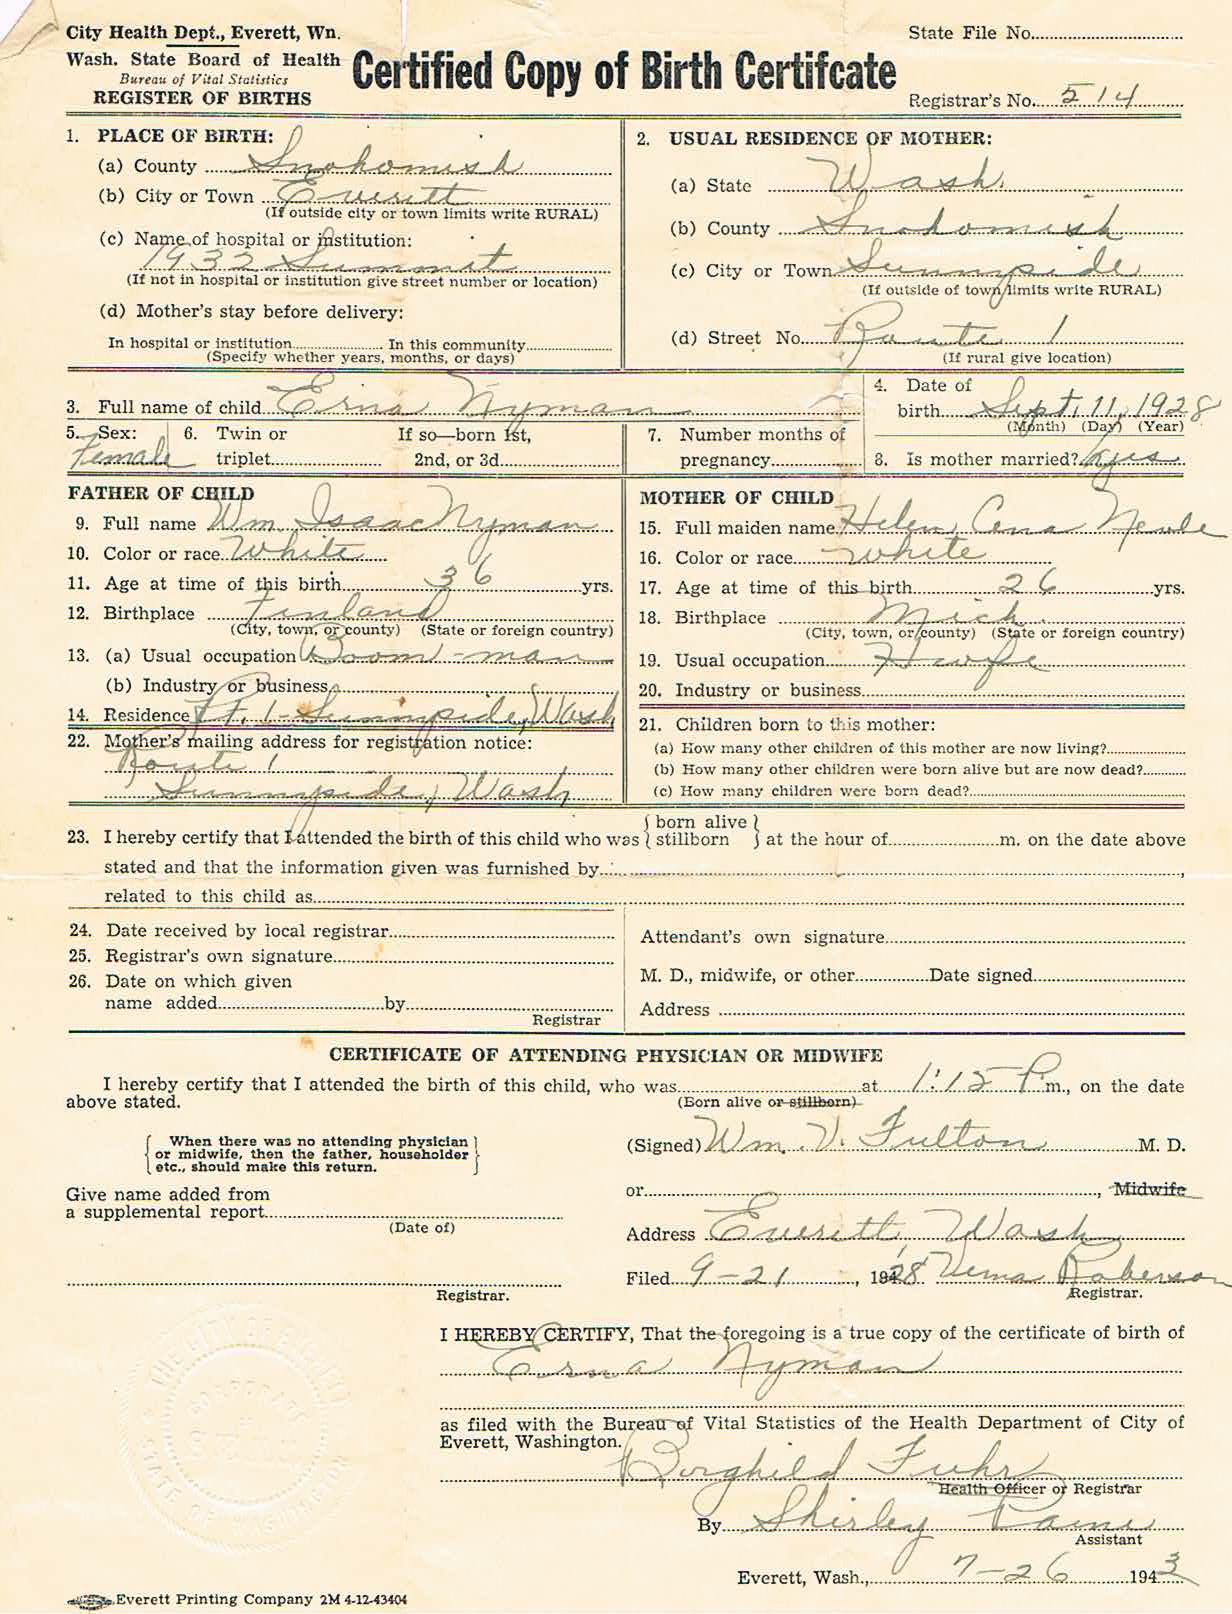 City Health Dept., Everett, Wn.
Wash. State Board of Health
Bureau of Vital Statistics
REGISTER OF BIRTHS
Certified Copy of Birth Certifcate
State File No.
Registrar's No. 514
1. PLACE OF BIRTH:
(a) County Snohomish
(b) City or Town Everett
(If outside city or town limits write RURAL)
(c) Name of hospital or institution:
1932 Summit
(If not in hospital or institution give street number or location)
(d) Mother's stay before delivery:
In hospital or institution In this community
(Specify whether years, months, or days)
2. USUAL RESIDENCE OF MOTHER:
(a) State Wash.
(b) County Snohomish
(c) City or Town Sunnyside
(If outside of town limits write RURAL)
(d) Street No. Route 1
(If rural give location)
3. Full name of child Erna Nyman
4. Date of
birth Sept. 11, 1928
(Month) (Day) (Year)
5. Sex:
Female
6. Twin or
triplet
If so—born 1st,
2nd, or 3d
7. Number months of
pregnancy
8. Is mother married? yes
FATHER OF CHILD
9. Full name Wm Isaac Nyman
10. Color or race White
11. Age at time of this birth 36 yrs.
12. Birthplace Finland
(City, town, or county) (State or foreign country)
13. (a) Usual occupation Boom-man
(b) Industry or business
14. Residence Rt. 1 - Sunnyside, Wash
22. Mother's mailing address for registration notice:
Route 1
Sunnyside, Wash
MOTHER OF CHILD
15. Full maiden name Helen
16. Color or race White
17. Age at time of this birth 26 yrs.
18. Birthplace Mich.
(City, town, or county) (State or foreign country)
19. Usual occupation Hwife
20. Industry or business
21. Children born to this mother:
(a) How many other children of this mother are now living?
(b) How many other children were born alive but are now dead?
(c) How many children were born dead?
23. I hereby certify that I attended the birth of this child who was { born alive stillborn } at the hour of m. on the date above
stated and that the information given was furnished by ,
related to this child as
24. Date received by local registrar
25. Registrar's own signature
26. Date on which given
name added by
Registrar
Attendant's own signature
M. D., midwife, or other Date signed
Address
CERTIFICATE OF ATTENDING PHYSICIAN OR MIDWIFE
I hereby certify that I attended the birth of this child, who was at 1:15 P.m., on the date
above stated. (Born alive or stillborn)
When there was no attending physician
or midwife, then the father, householder
etc., should make this return.
Give name added from
a supplemental report
(Date of)
Registrar.
(Signed) Wm. V. Fulton M. D.
or , Midwife
Address Everett, Wash.
Filed 9-21, 1928 Verna Roberson
Registrar.
I HEREBY CERTIFY, That the foregoing is a true copy of the certificate of birth of
Erna Nyman
as filed with the Bureau of Vital Statistics of the Health Department of City of
Everett, Washington.
Borghild Fuhr
Health Officer or Registrar
By Shirley Paine
Assistant
Everett, Wash., 7-26 1943
THE CITY OF EVERETT
CORPORATE
STATE OF WASHINGTON
Everett Printing Company 2M 4-12-43404